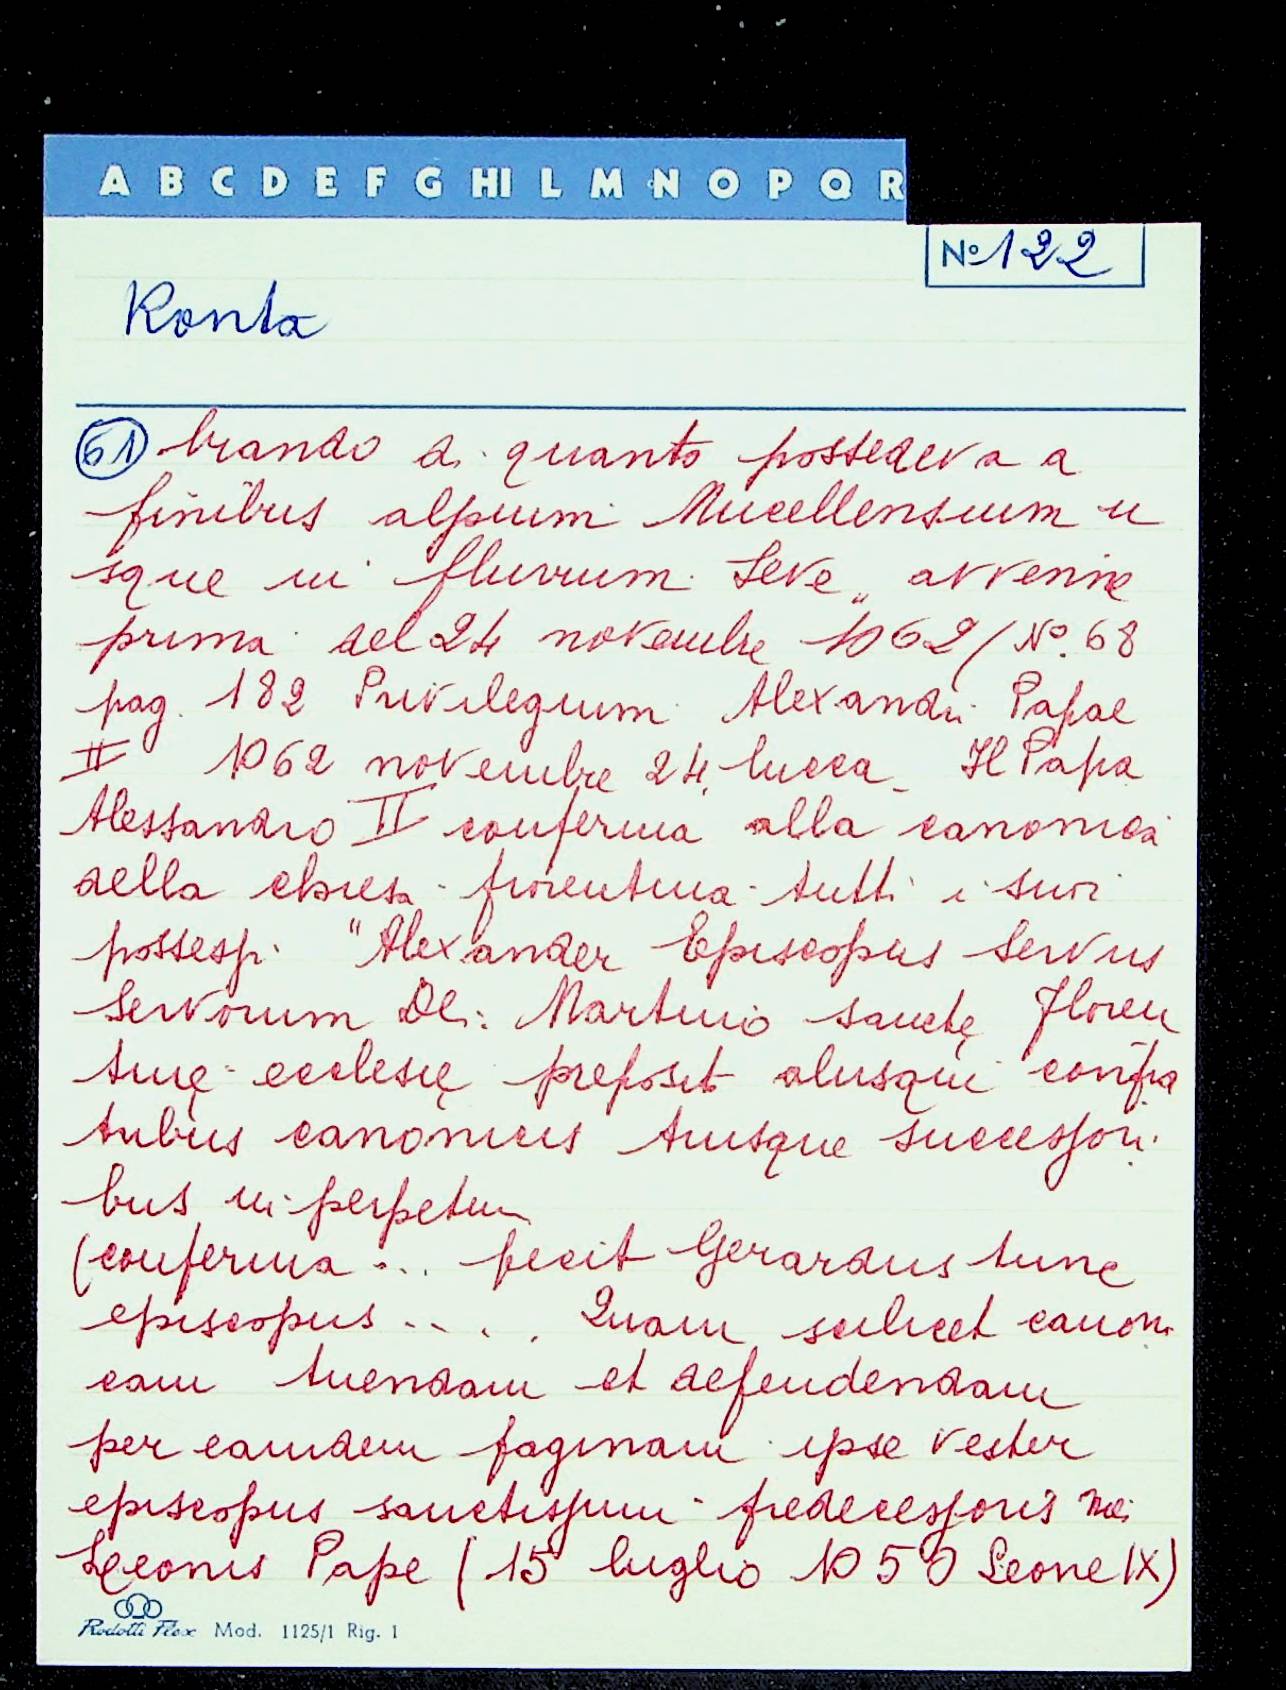 A B C D E F G HI L M N O P Q R
No 122
Ronta
61 brando di quanto possedeva a
finibus alpium Mucellensium u
sque in fluvium Seve „ avvenne
prima del 24 novembre 1062 (No. 68
pag. 182 Privilegium Alexandri Papae
II 1062 novembre 24, Lucca _ Il Papa
Alessandro II conferma alla canonica
della chiesa fiorentina tutti i suoi
possessi "Alexander Episcopus Servus
Servorum Dei: Martino sanctę Floren
tinę ecclesię preposit aliisqui confra
tribus canonicis tuisque successori
bus in perpetum
(conferma ... fecit Gerardus tunc
episcopus ..... Quam scilicet canoni
cam tuendam et defendendam
per eamdem paginam ipse vester
episcopus sanctissimi predecessoris mei
Leonis Pape (15 luglio 1050 Leone IX)
Rodotti Flex Mod. 1125/1 Rig. 1